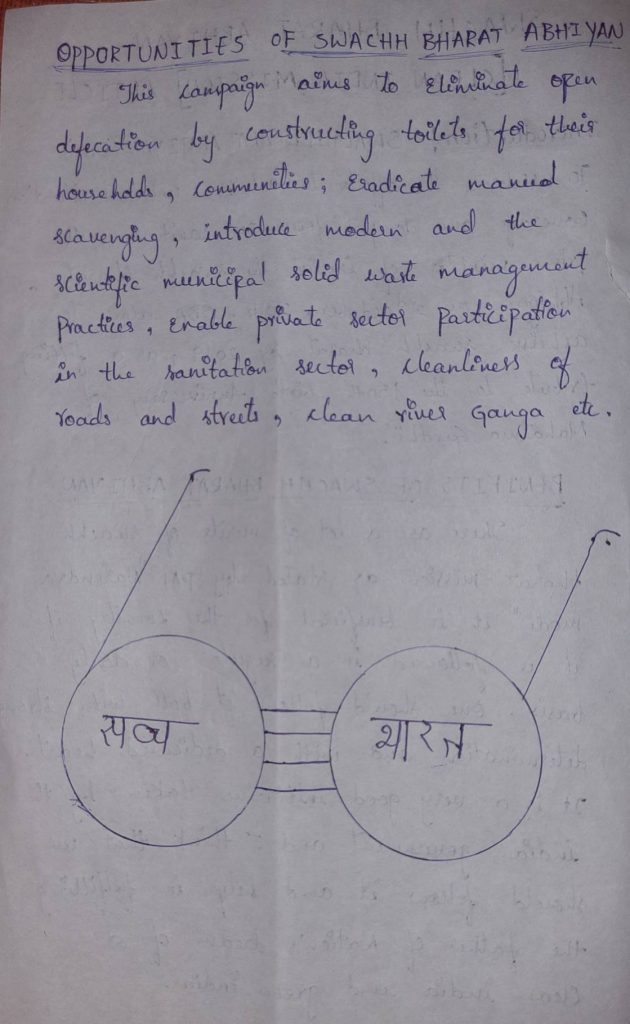 OPPORTUNITIES OF SWACHH BHARAT ABHIYAN
This campaign aims to Eliminate open
defecation by constructing toilets for their
households, communities; Eradicate manual
scavenging, introduce modern and the
scientific municipal solid waste management
Practices, Enable private sector Participation
in the sanitation sector, cleanliness of
roads and streets, clean river Ganga etc.
स्वच्छ भारत